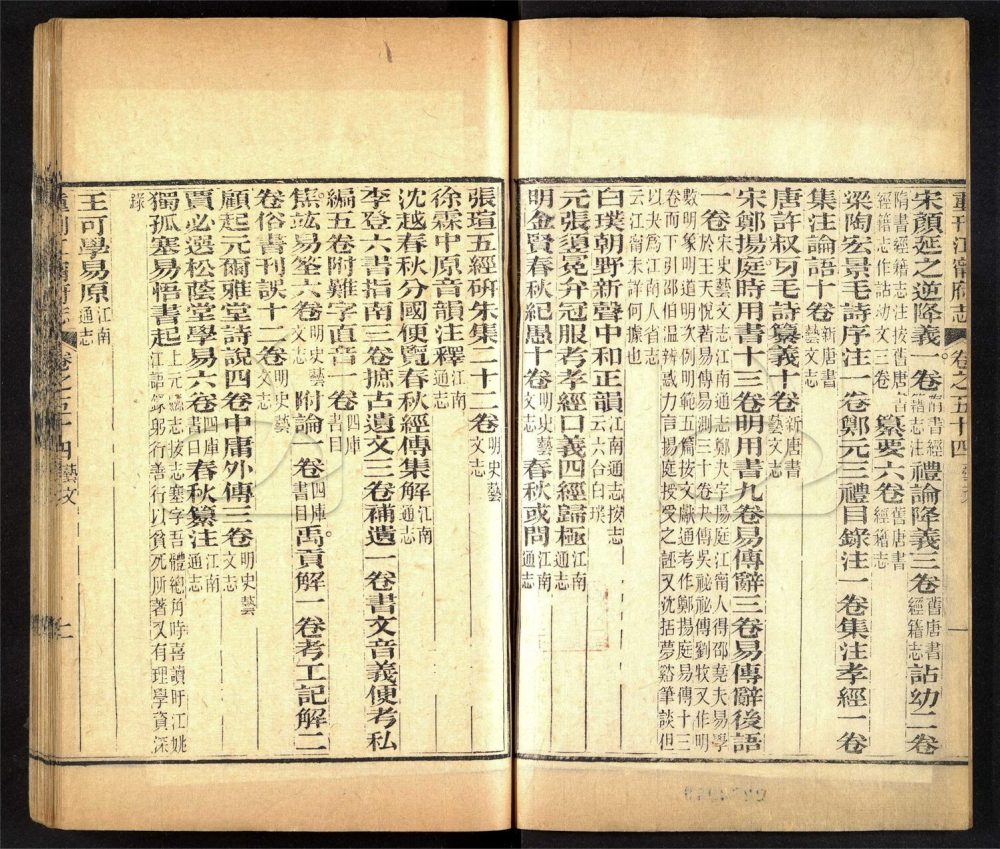 重刊江甯府志 卷之五十四 藝文 一
宋顏延之逆降義一卷隋書經籍志注禮論降義三卷舊唐書經籍志詁幼二卷
隋書經籍志注按舊唐書經籍志作詁幼文三卷 纂要六卷舊唐書經籍志
梁陶宏景毛詩序注一卷鄭元三禮目錄注一卷集注孝經一卷
集注論語十卷新唐書藝文志
唐許叔牙毛詩纂義十卷新唐書藝文志
宋鄭揚庭時用書十三卷明用書九卷易傳辭三卷易傳辭後語
一卷宋史藝文志江南通志鄭夬字揚庭江甯人得邵堯夫易學於王天悅著易傳易測三十卷夬傳吳祕祕傳劉牧又作明
數明象明道明次例明範五篇按文獻通考作鄭揚庭易傳十三卷而下引邵伯溫辨惑力言揚庭授受之誣又沈括夢谿筆談但
以夬爲江南人省志云江甯未詳何據也
白璞朝野新聲中和正韻江南通志按志云六合白璞
元張須冕弁冠服考孝經口義四經歸極江南通志
明金賢春秋紀愚十卷明史藝文志春秋或問江南通志
張瑄五經硏朱集二十二卷明史藝文志
徐霖中原音韻注釋江南通志
沈越春秋分國便覽春秋經傳集解江南通志
李登六書指南三卷摭古遺文三卷補遺一卷書文音義便考私
編五卷附難字直音一卷四庫書目
焦竑易筌六卷明史藝文志附論一卷四庫書目禹貢解一卷考工記解二
卷俗書刊誤十二卷明史藝文志
顧起元爾雅堂詩說四卷中庸外傳三卷明史藝文志
賈必選松蔭堂學易六卷四庫書目春秋纂注江南通志
獨孤塞易悟書起上元縣志按志塞字吾體總角時喜讀盱江姚江語錄躬行善行以貧死所著又有理學資深
錄
王可學易原江南通志
重刊江甯府志 卷之五十四 藝文 二